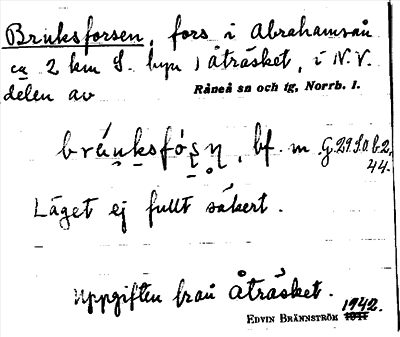 Bruksforsen, fors i Abrahamsån
ca 2 km S. byn Åträsket, i N.V.
delen av
Råneå sn och tg, Norrb. l.
bf. m G.29.S.O.b.2,
44.
Läget ej fullt säkert.
Uppgiften från Åträsket.
EDVIN BRÄNNSTRÖM 1942.